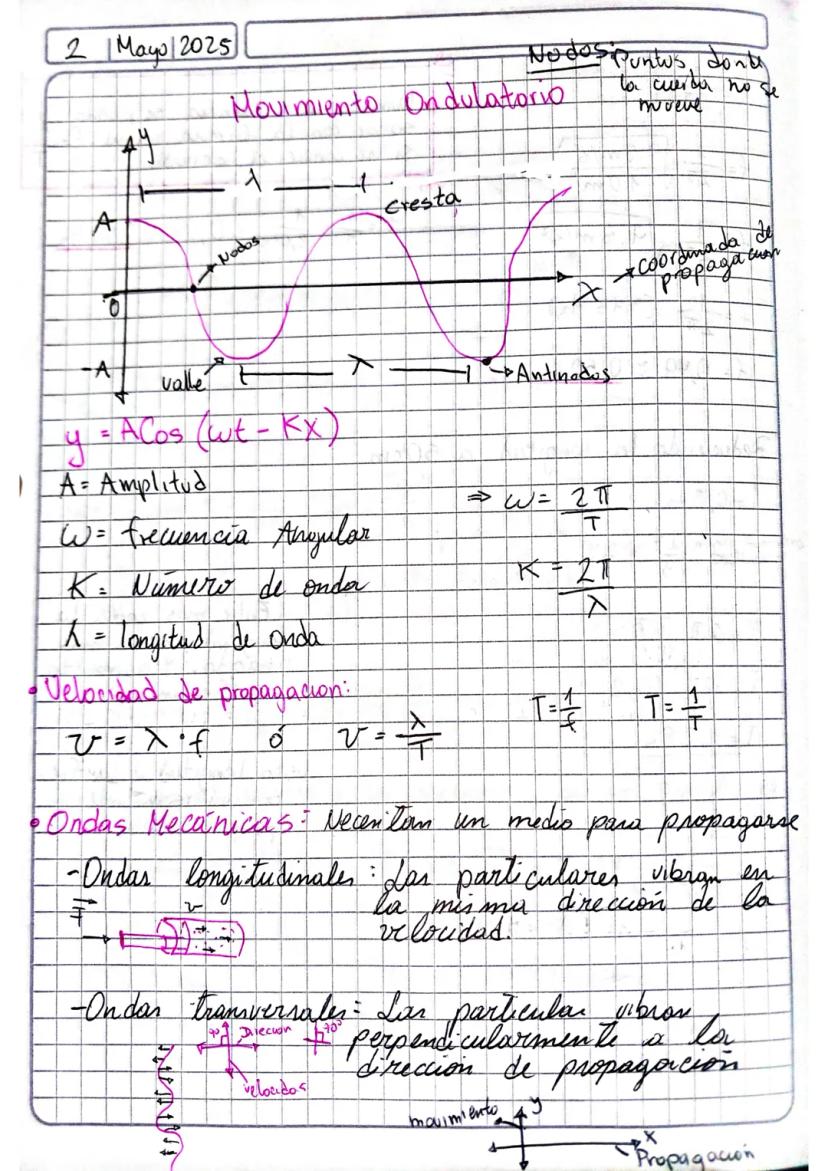 2 | Mayo | 2025
Nodos: Puntos donde
la cuerda no se
mueve
Movimiento Ondulatorio
y
λ
cresta
A
Nodos
coordinada de
propagación
x
0
-A
valle
λ
Antinodos
y = A Cos (ωt - Kx)
A = Amplitud
⇒ ω = 2π/T
ω = frecuencia Angular
K = Número de onda
K = 2π/λ
λ = longitud de onda
• Velocidad de propagacion:
v = λ · f ó v = λ/T
T = 1/f T = 1/T
• Ondas Mecánicas: Necesitan un medio para propagarse
- Ondas longitudinales: Las particulares vibran en
la misma dirección de la
velocidad.
F
v
- Ondas transversales: Las particulas vibran
perpendicularmente a la
dirección de propagación
90° Direccion
90°
velocidos
movimiento
y
x
Propagación